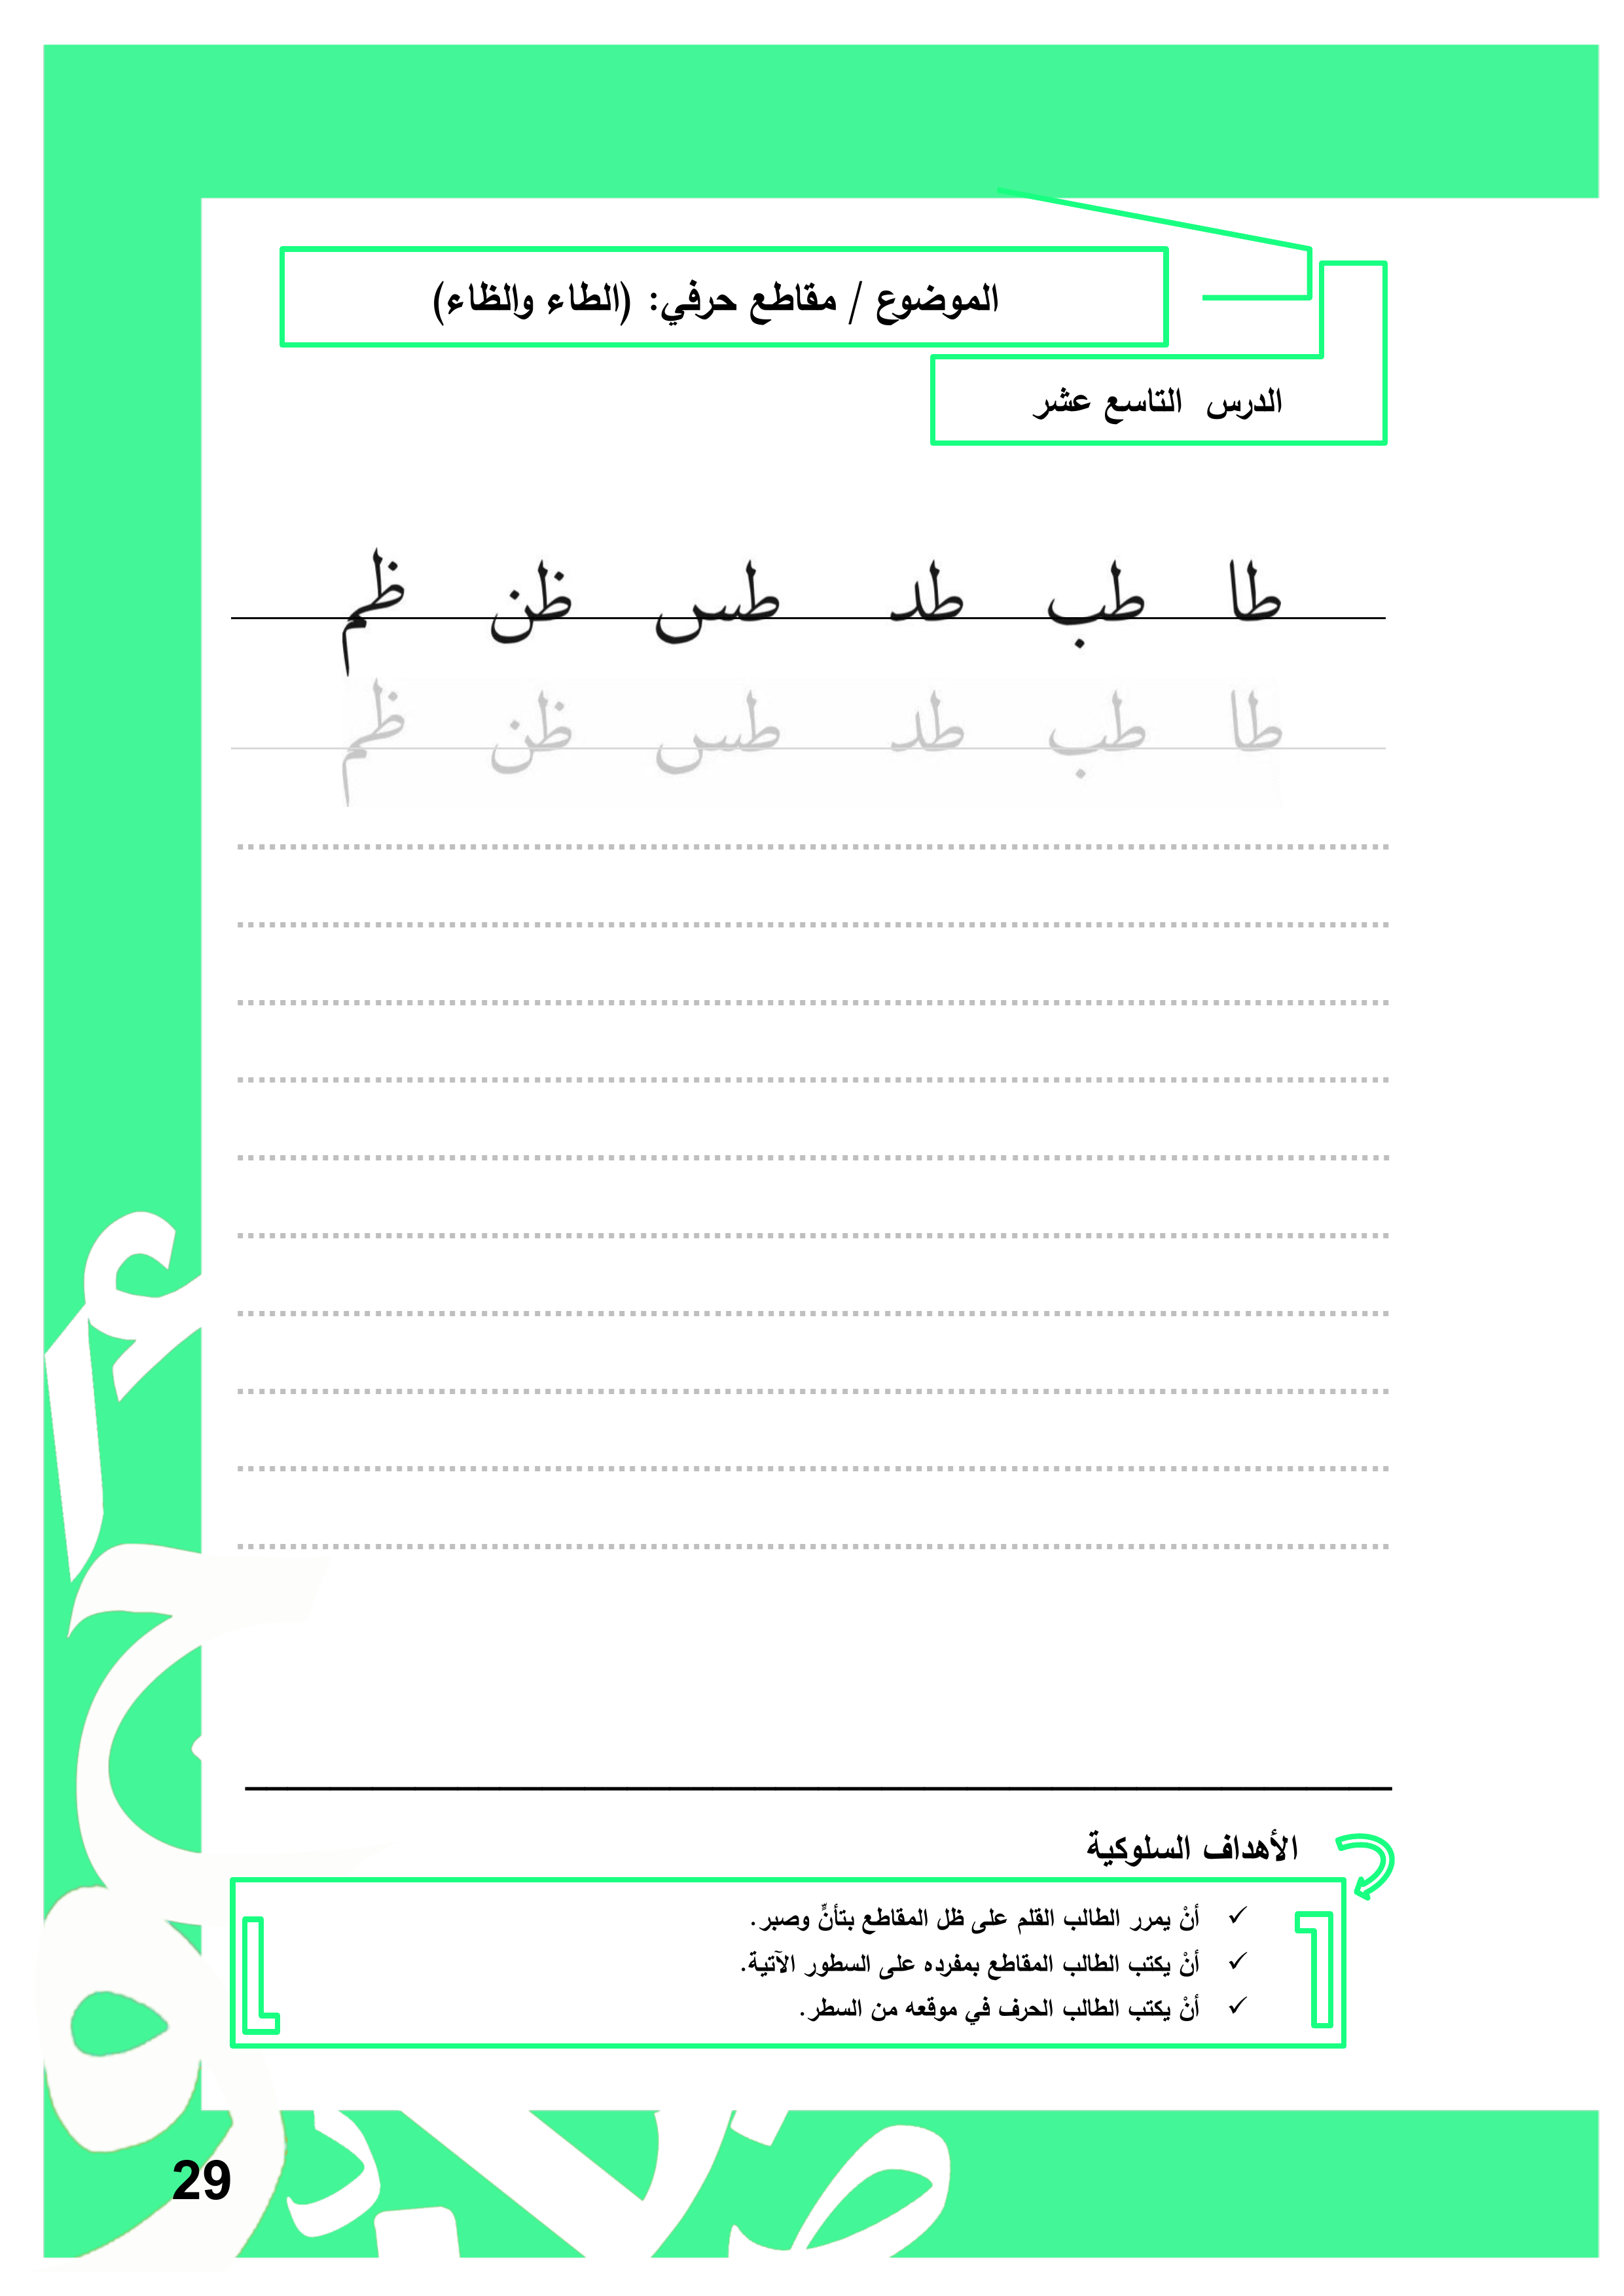 الموضوع / مقاطع حرفي: (الطاء والظاء)
الدرس التاسع عشر
طا طب طد طس ظن ظم
طا طب طد طس ظن ظم
الأهداف السلوكية
✓ أنْ يمرر الطالب القلم على ظل المقاطع بتأنٍّ وصبر.
✓ أنْ يكتب الطالب المقاطع بمفرده على السطور الآتية.
✓ أنْ يكتب الطالب الحرف في موقعه من السطر.
29